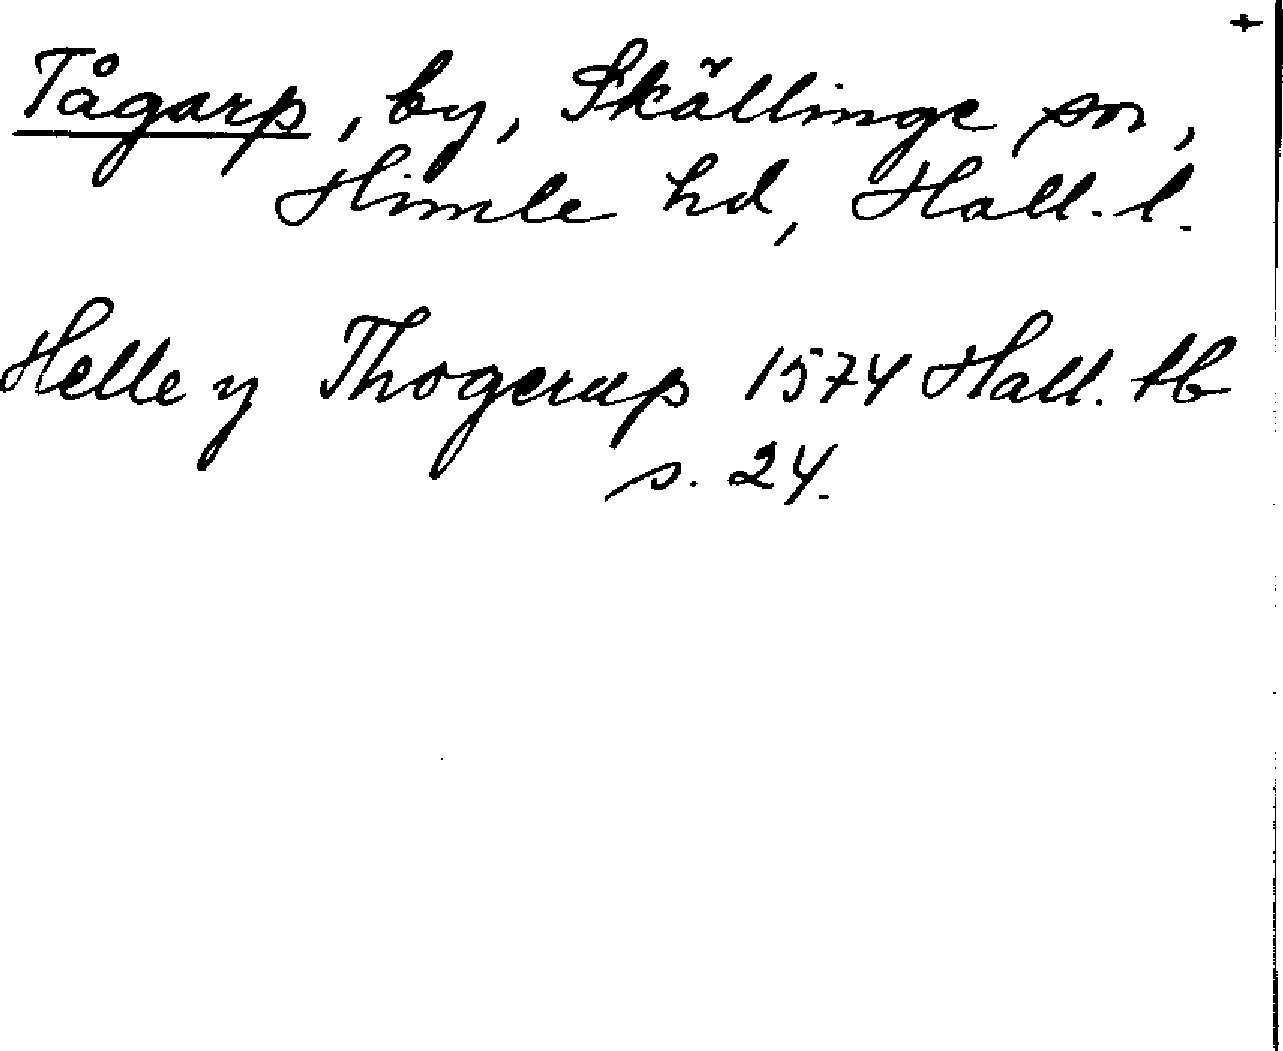 +
Tågarp, by, Skällinge sn,
Himle hd, Hall. l.
Helle y Thogerup 1574 Hall. tb
s. 24.